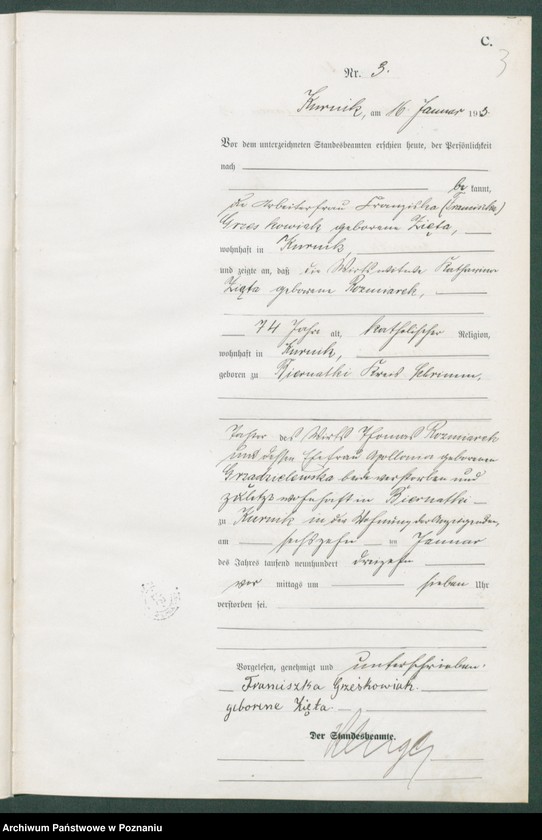 C.
3
Nr. 3.
Kurnik, am 16. Januar 1913.
Vor dem unterzeichneten Standesbeamten erschien heute, der Persönlichkeit
nach
be kannt,
die Arbeiterfrau Franziska (Franciszka)
Grzeskowiak geborene Zięta,
wohnhaft in Kurnik,
und zeigte an, daß die Wirtswitwe Katharina
Zięta geborene Rozmiarek,
74 Jahre alt, katholischer Religion,
wohnhaft in Kurnik,
geboren zu Biernatki Kreis Schrimm,
Tochter des Wirts Thomas Rozmiarek
und dessen Ehefrau Apollonia geborenen
beide verstorben und
zuletzt wohnhaft in Biernatki
zu Kurnik in der Wohnung der Anzeigenden,
am sechszehn ten Januar
des Jahres tausend neunhundert dreizehn
vor mittags um sieben Uhr
verstorben sei.
Vorgelesen, genehmigt und unterschrieben.
Franciszka Grześkowiak
geborene Zięta
Der Standesbeamte.
Archiwum Państwowe w Poznaniu